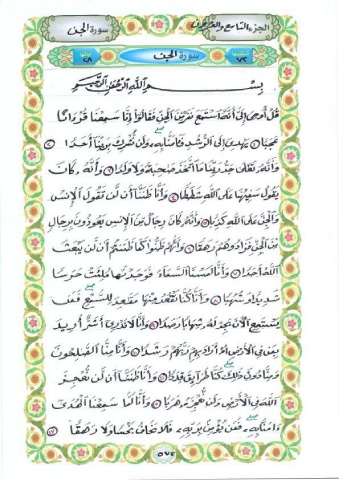 الجزء التاسع والعشرون سورة الجن
سورة الجن
بِسْمِ اللَّهِ الرَّحْمَٰنِ الرَّحِيمِ
قُلْ أُوحِيَ إِلَيَّ أَنَّهُ اسْتَمَعَ نَفَرٌ مِنَ الْجِنِّ فَقَالُوا إِنَّا سَمِعْنَا قُرْآنًا
عَجَبًا ١ يَهْدِي إِلَى الرُّشْدِ فَآمَنَّا بِهِ وَلَنْ نُشْرِكَ بِرَبِّنَا أَحَدًا ٢
وَأَنَّهُ تَعَالَىٰ جَدُّ رَبِّنَا مَا اتَّخَذَ صَاحِبَةً وَلَا وَلَدًا ٣ وَأَنَّهُ كَانَ
يَقُولُ سَفِيهُنَا عَلَى اللَّهِ شَطَطًا ٤ وَأَنَّا ظَنَنَّا أَنْ لَنْ تَقُولَ الْإِنْسُ
وَالْجِنُّ عَلَى اللَّهِ كَذِبًا ٥ وَأَنَّهُ كَانَ رِجَالٌ مِنَ الْإِنْسِ يَعُوذُونَ بِرِجَالٍ
مِنَ الْجِنِّ فَزَادُوهُمْ رَهَقًا ٦ وَأَنَّهُمْ ظَنُّوا كَمَا ظَنَنْتُمْ أَنْ لَنْ يَبْعَثَ
اللَّهُ أَحَدًا ٧ وَأَنَّا لَمَسْنَا السَّمَاءَ فَوَجَدْنَاهَا مُلِئَتْ حَرَسًا
شَدِيدًا وَشُهُبًا ٨ وَأَنَّا كُنَّا نَقْعُدُ مِنْهَا مَقَاعِدَ لِلسَّمْعِ فَمَنْ
يَسْتَمِعِ الْآنَ يَجِدْ لَهُ شِهَابًا رَصَدًا ٩ وَأَنَّا لَا نَدْرِي أَشَرٌّ أُرِيدَ
بِمَنْ فِي الْأَرْضِ أَمْ أَرَادَ بِهِمْ رَبُّهُمْ رَشَدًا ١٠ وَأَنَّا مِنَّا الصَّالِحُونَ
وَمِنَّا دُونَ ذَٰلِكَ كُنَّا طَرَائِقَ قِدَدًا ١١ وَأَنَّا ظَنَنَّا أَنْ لَنْ نُعْجِزَ
اللَّهَ فِي الْأَرْضِ وَلَنْ نُعْجِزَهُ هَرَبًا ١٢ وَأَنَّا لَمَّا سَمِعْنَا الْهُدَىٰ
آمَنَّا بِهِ فَمَنْ يُؤْمِنْ بِرَبِّهِ فَلَا يَخَافُ بَخْسًا وَلَا رَهَقًا ١٣
٥٧٢